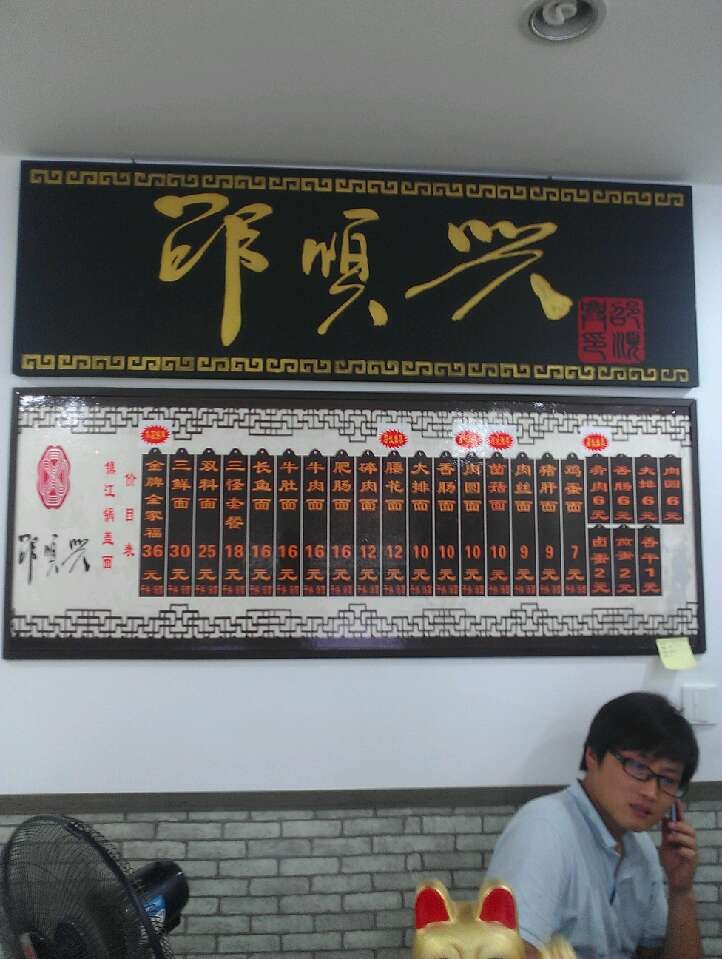 邵順兴
邵順兴印
邵順兴
镇江锅盖面
价目表
金牌全家福 36元
三鲜面 30元
双料面 25元
三怪套餐 18元
长鱼面 16元
牛肚面 16元
牛肉面 16元
肥肠面 16元
碎肉面 12元
腰花面 12元
大排面 10元
香肠面 10元
肉圆面 10元
菌菇面 10元
肉丝面 9元
猪肝面 9元
鸡蛋面 7元
肴肉 6元
香肠 6元
大排 6元
肉圆 6元
卤蛋 2元
煎蛋 2元
香干 1元